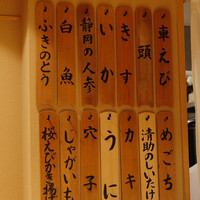 車えび
頭
きす
いか
静岡の人参
白魚
ふきのとう
めごち
清助のしいたけ
カキ
うに
穴子
じゃがいも
桜えびかき揚げ